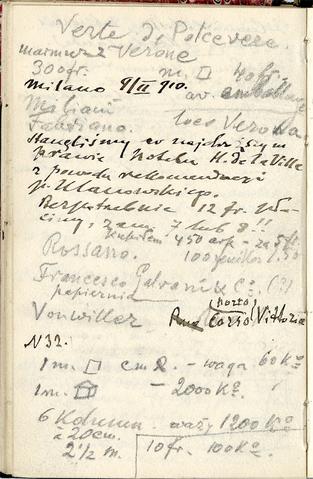 Verte di Polcevere.
marmur z Verone
300 fr. m. □ 40 fr.
Milano 9/II 910. av. emballage
Miliani loco Verona
Fabriano.
Stanęliśmy co najdroższym
prawie hotelu H. de la Ville
z powodu rekomendacji
p. Ulanowskiego.
Bezpotrzebnie 12 fr. pła-
cimy, zam. 7 lub 8!!
kupiłem 450 ark – za 5 fr.
Rossano. 100 1.50
Francesco Galvani & Co. (?)
papiernia
Vonwiller (porto)
Corso Vittoria
N 32.
1 m. □ cm 2. – waga 60 Ko
1 m. – 2000 Ko.
6 Kolumn. waży 1200 Ko
à 20 cm.
2 1/2 m. 10 fr. 100 Ko.